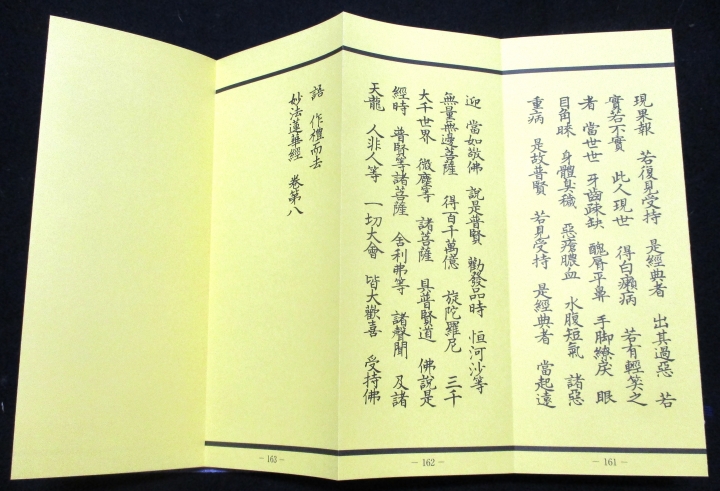 現果報 若復見受持 是經典者 出其過惡 若
實若不實 此人現世 得白癩病 若有輕笑之
者 當世世 牙齒疎缺 醜脣平鼻 手脚繚戻 眼
目角睞 身體臭穢 惡瘡膿血 水腹短氣 諸惡
重病 是故普賢 若見受持 是經典者 當起遠
- 161 -
迎 當如敬佛 說是普賢 勸發品時 恒河沙等
無量無邊菩薩 得百千萬億 旋陀羅尼 三千
大千世界 微塵等 諸菩薩 具普賢道 佛說是
經時 普賢等諸菩薩 舍利弗等 諸聲聞 及諸
天龍 人非人等 一切大會 皆大歡喜 受持佛
- 162 -
語 作禮而去
妙法蓮華經 卷第八
- 163 -